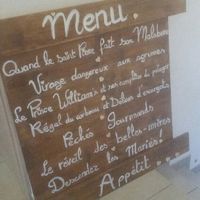 Menu.
Quand le saint Père fait son Malabar
Virage dangereux aux agrumes
Le Prince William's et son complice de potager
Régal du corbeau et Délice d'escargots
Péchés Gourmands
Le réveil des belles-mères
Descendez les Mariés!
Appétit...